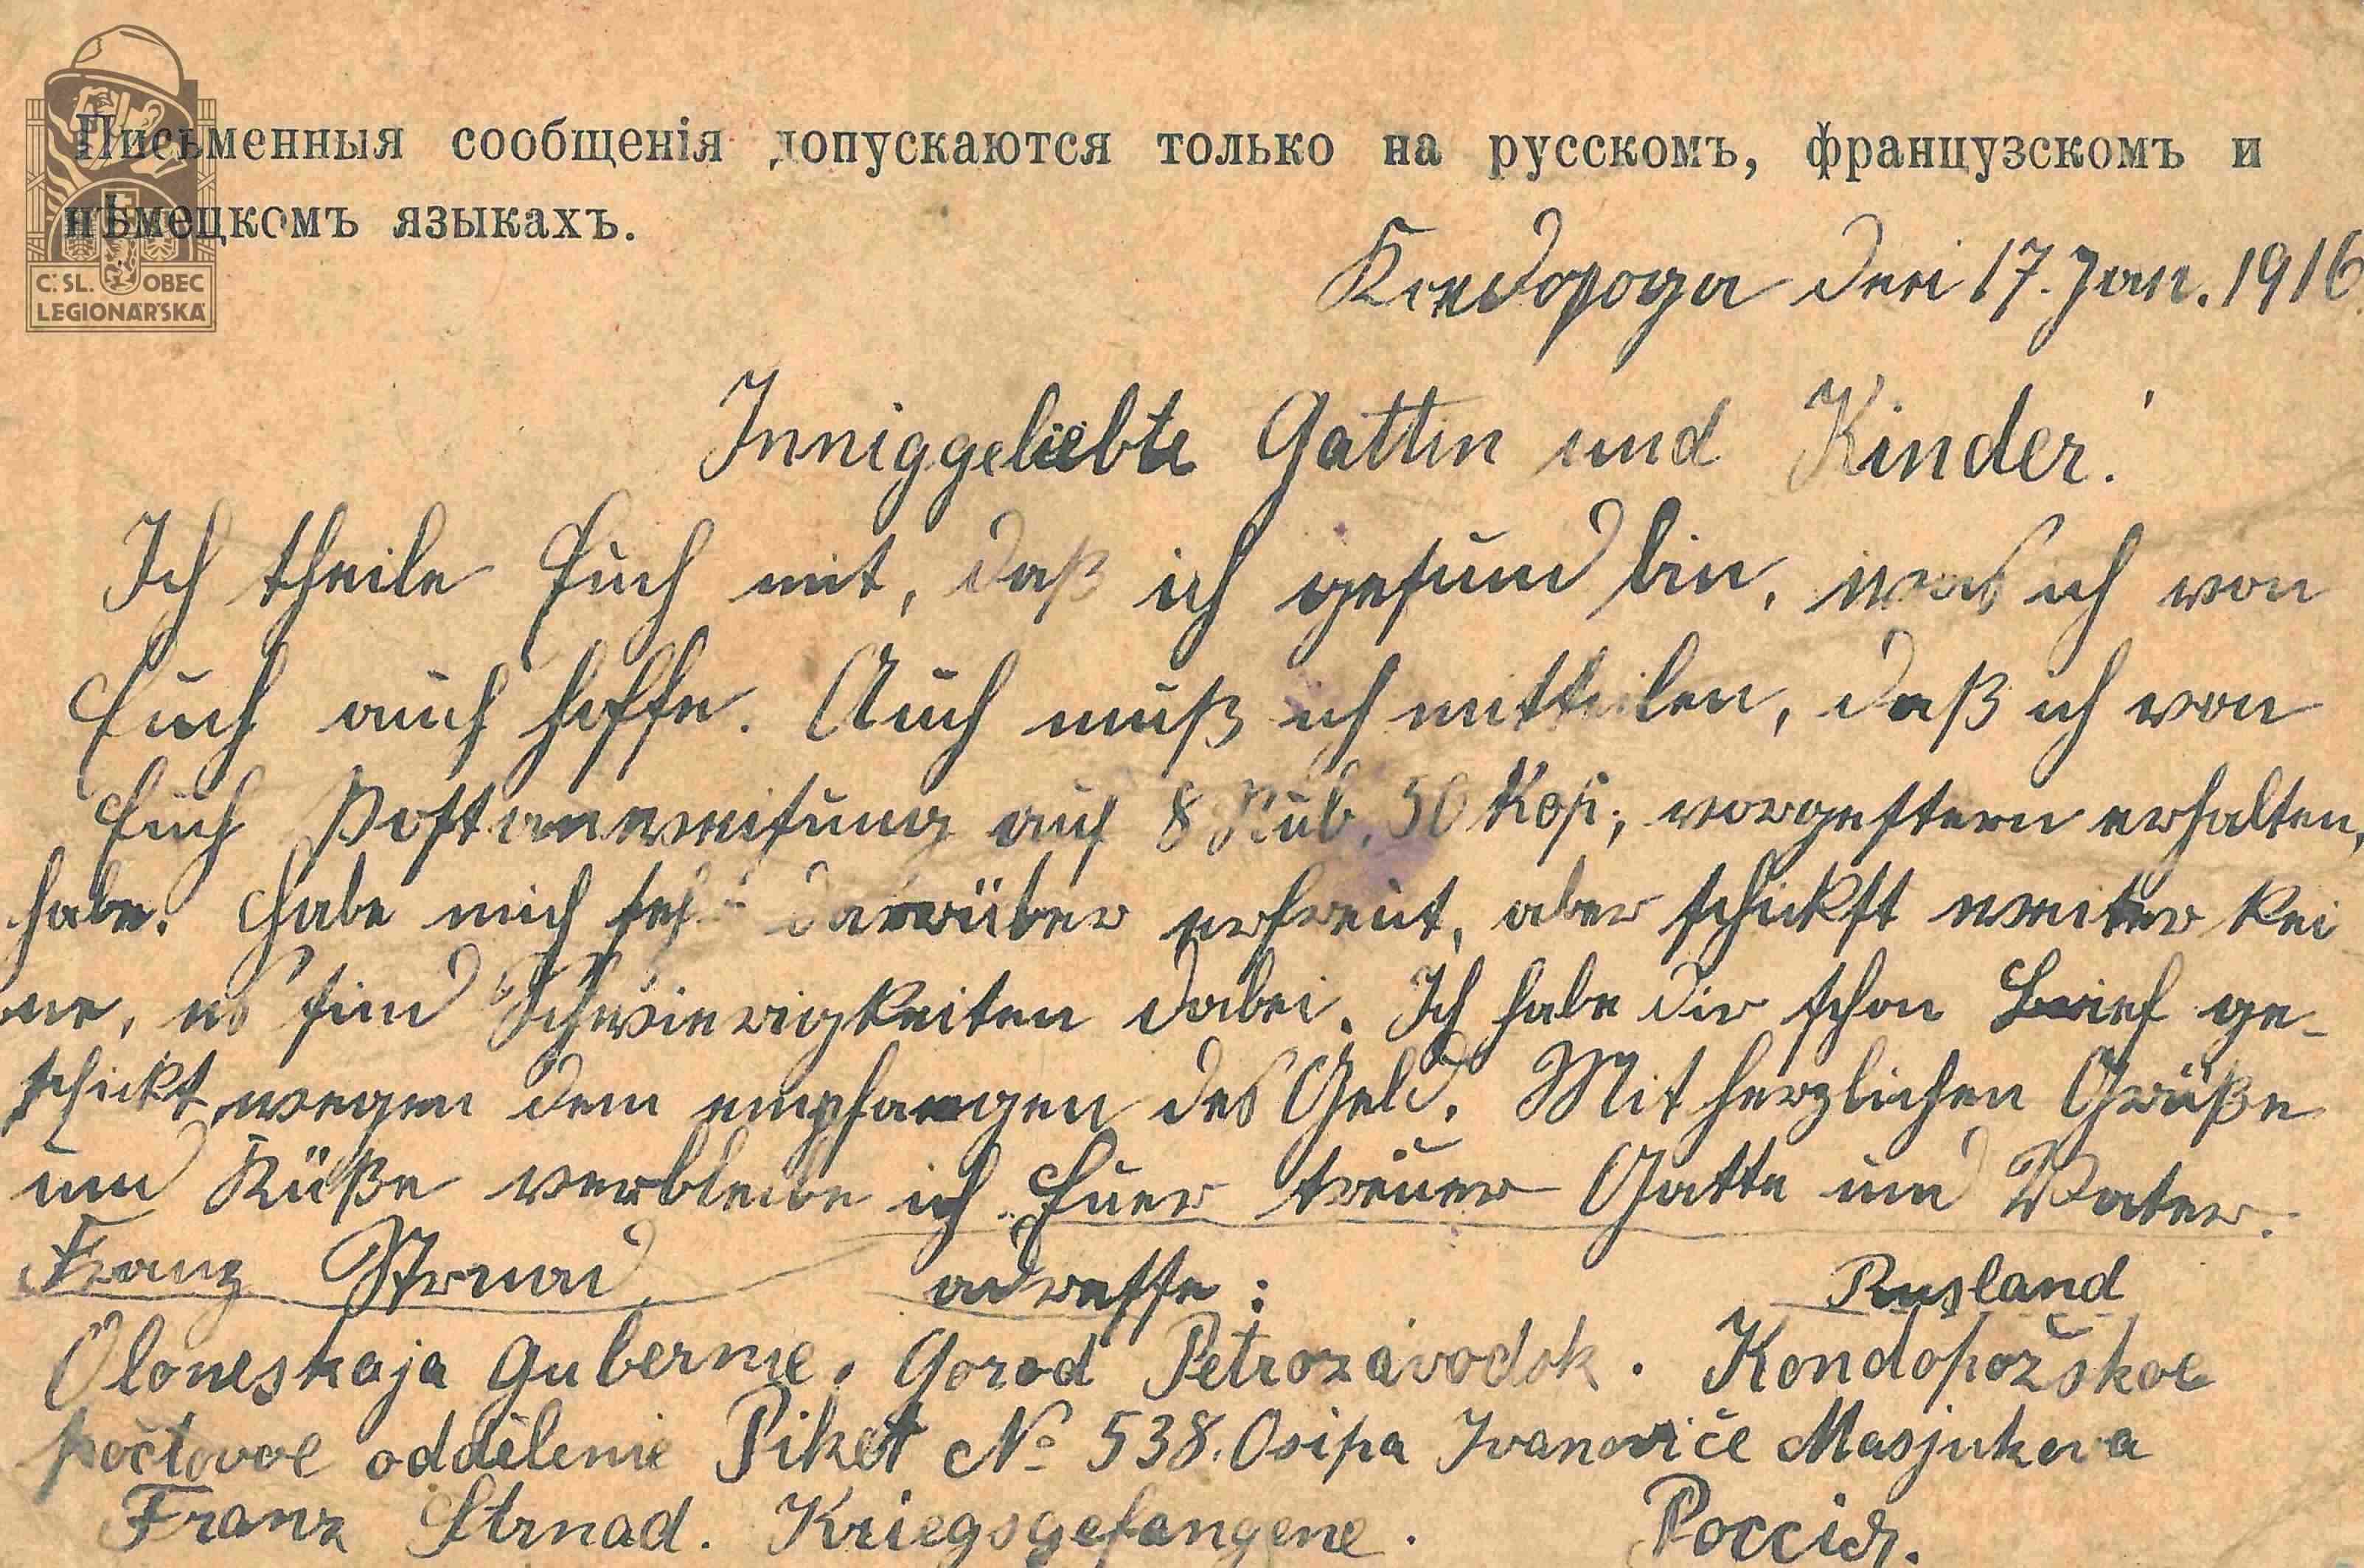 Письменныя сообщенія допускаются только на русскомъ, французскомъ и
нѣмецкомъ языкахъ.
Č.SL. OBEC
LEGIONÁŘSKÁ
den 17. Jan. 1916
Inniggeliebte Gattin und Kinder!
Ich theile Euch mit, daß ich gesund bin, was ich von
Euch auch hoffe. Auch muß ich mittheilen, daß ich von
Euch Postanweisung auf 8 Rub. 50 Kop; vorgestern erhalten,
habe. Habe mich sehr darüber erfreut, aber schickst weiter kei
ne, es sind Schwierigkeiten dabei. Ich habe dir schon Brief ge-
schickt wegen dem empfangen des Geld. Mit herzlichen Grüße
und Küße verbleibe ich Euer treuer Gatte und Vater.
Franz Strnad. adresse: Rusland
Oloneskaja Gubernie. Gorod Petrozavodsk. Kondopožskoe
počtovoe oddělenie Piket No 538. Osipa Ivanoviče Masjukova
Franz Strnad. Kriegsgefangene. Россія.